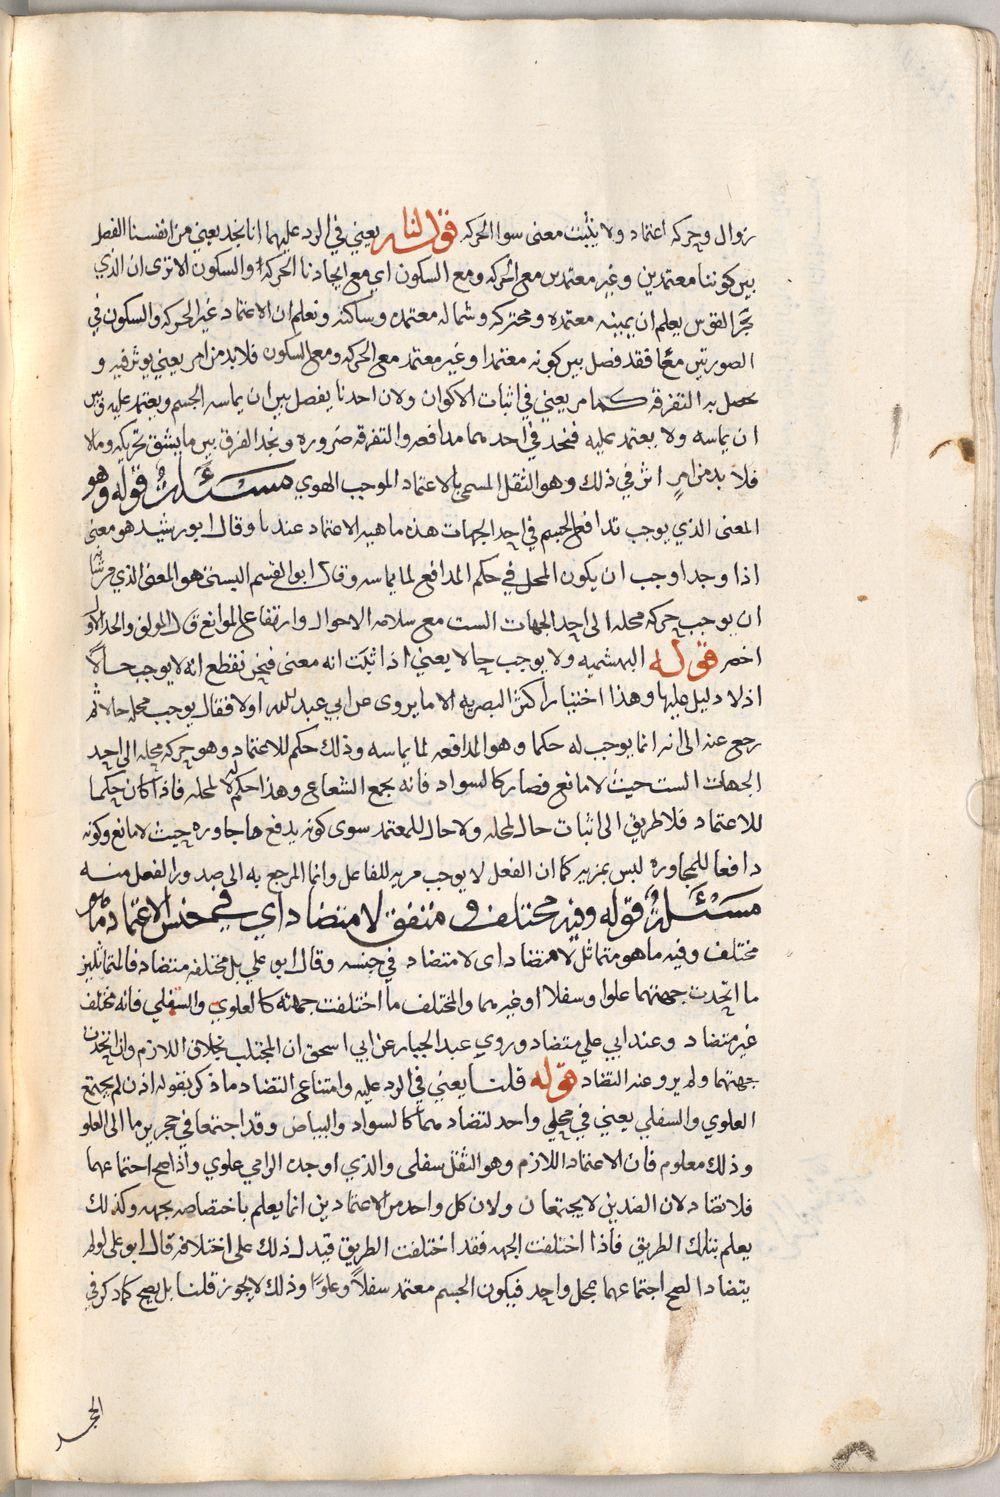 زوال وحركه اعتماد ولا يثبت معنى سوا الحركه قولنا يعني في الرد عليهما انا نجد يعني من انفسنا الفصل
بين كوننا معتمدين وغير معتمدين مع الحركه ومع السكون اي مع ايجادنا الحركه والسكون الا ترى ان الذي
يجر القوس يعلم ان يمينه معتمده ومحتركه وشماله معتمده وساكنه ونعلم ان الاعتماد غير الحركه والسكون في
الصورتين معًا فقد فصل بين كونه معتمدا وغير معتمد مع الحركه ومع السكون فلا بد من امر يعني يوثر فيه و
تحصل به التفرقه كما مر يعني في اثبات الاكوان ولان احدنا يفصل بين ان يماسه الجسم ويعتمد عليه وبين
ان يماسه ولا يعتمد عليه فنجد في احدهما مدافعه والتفرقه ضروره ونجد الفرق بين ما يشق تحريكه وما لا
فلا بد من امرٍ اثر في ذلك وهو الثقل المسمى بالاعتماد الموجب الهوي مسئلة قوله وهو
المعنى الذي يوجب تدافع الجسم في احد الجهات هذه ماهيه الاعتماد عندنا وقال ابو رشيد هو معنى
اذا وجد اوجب ان يكون المحل في حكم المدافع لما يماسه وقال ابو القسم البستي هو المعنى الذي من شانه
ان يوجب حركه محله الى احد الجهات الست مع سلامه الاحوال وارتفاع الموانع قال المولف والحد الاول
اخصر قوله البهشميه ولا يوجب حالا يعني اذا ثبت انه معنى فنحن نقطع انه لا يوجب حالًا
اذ لا دليل عليها وهذا اختيار اكثر البصريه الا ما يروى عن ابي عبدالله اولا فقال يوجب محله حالا ثم
رجع عنه الى انه انما يوجب له حكما وهو المدافعه لما يماسه وذلك حكم للاعتماد وهو حركه محله الى احد
الجهات الست حيث لا مانع فصار كالسواد فانه يجمع الشعاع وهذا حكم له لا لمحله فاذا كان حكما
للاعتماد فلا طريق الى اثبات حال لمحله ولا حال للمعتمد سوى كونه يدفع ما جاوره حيث لا مانع وكونه
دافعا للمجاوره ليس بمزيه كما ان الفعل لا يوجب مزيه للفاعل وانما المرجع به الى صدور الفعل منه
مسئلة قوله وفيه مختلف ومتفق لا متضاد اي في جنس الاعتماد ما هو
مختلف وفيه ما هو متماثل لا متضاد اي لا متضاد في جنسه وقال ابو علي بل مختلفه متضاد فالمتماثل
ما اتحدت جهتهما علوا وسفلا او غيرهما والمختلف ما اختلفت جهته كالعلوي والسفلي فانه مختلف
غير متضاد وعند ابي علي متضاد وروي عبد الجبار عن ابي اسحق ان المجتلب بخلاف اللازم وان اتحدت
جهتهما ولم يرو عنه التضاد قوله قلنا يعني في الرد عليه وامتناع التضاد ما ذكر بقوله اذن لم يجتمع
العلوي والسفلي يعني في محلي واحد لتضادهما كالسواد والبياض وقد اجتمعا في حجر يرما الى العلو
وذلك معلوم فان الاعتماد اللازم وهو الثقل سفلى والذي اوجده الرامي علوي واذا صح اجتماعهما
فلا تضاد لان الضدين لا يجتمعان ولان كل واحد من الاعتمادين انما يعلم باختصاصه بجهه وكذلك
يعلم بتلك الطريق فاذا اختلفت الجهه فقد اختلفت الطريق فيدل ذلك على اختلافه قال ابو علي لو لم
يتضادا لصح اجتماعهما بمحل واحد فيكون الجسم معتمد سفلًا وعلوًا وذلك لا يجوز قلنا بل يصح كما ذكر في
الحجر